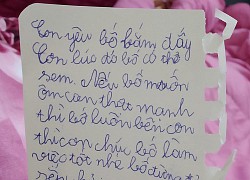 Con yêu bố bằng đấy
Con lúc đó bố có thể
sem. Nếu bố muốn
ôm con thật mạnh
thì bố luôn bên con
thì con chịu bố làm
việc tốt nhé bố đừng